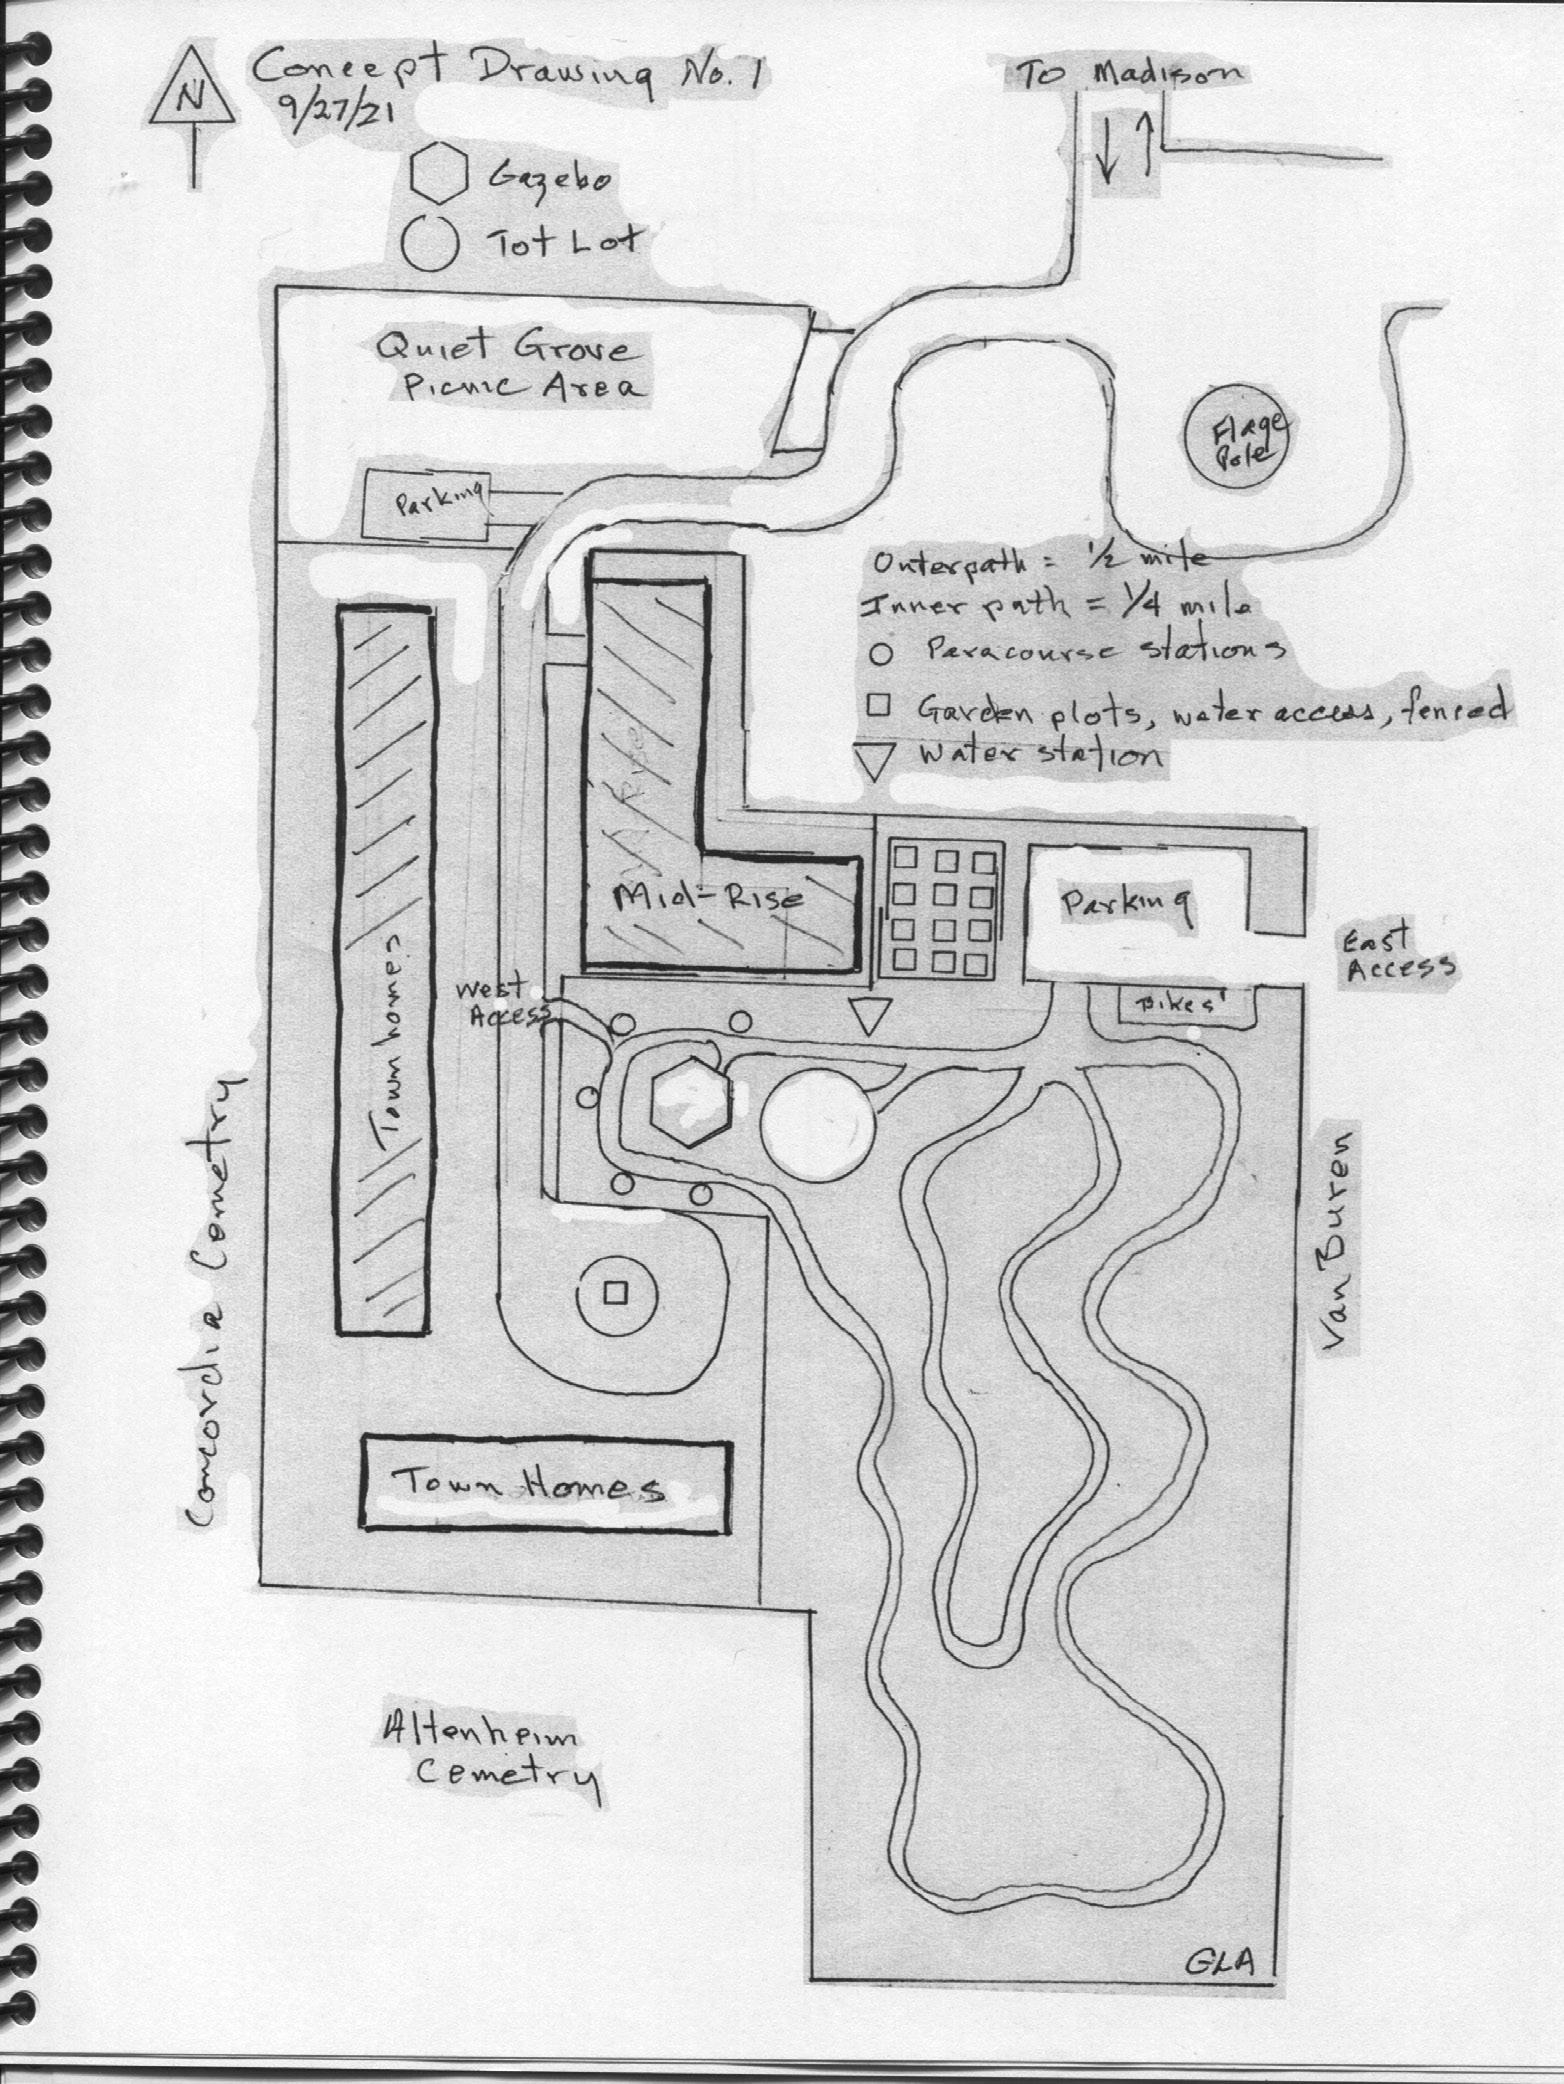 N
Concept Drawing No. 1
9/27/21
Gazebo
Tot Lot
To Madison
Quiet Grove
Picnic Area
Parking
Flage
Pole
Outerpath = 1/2 mile
Inner path = 1/4 mile
Paracourse stations
Garden plots, water access, fenced
Water station
Mid-Rise
Parking
East
Access
Bikes
West
Access
Townhomes
Concordia Cemetry
Van Buren
Town Homes
Altenheim
Cemetry
GLA